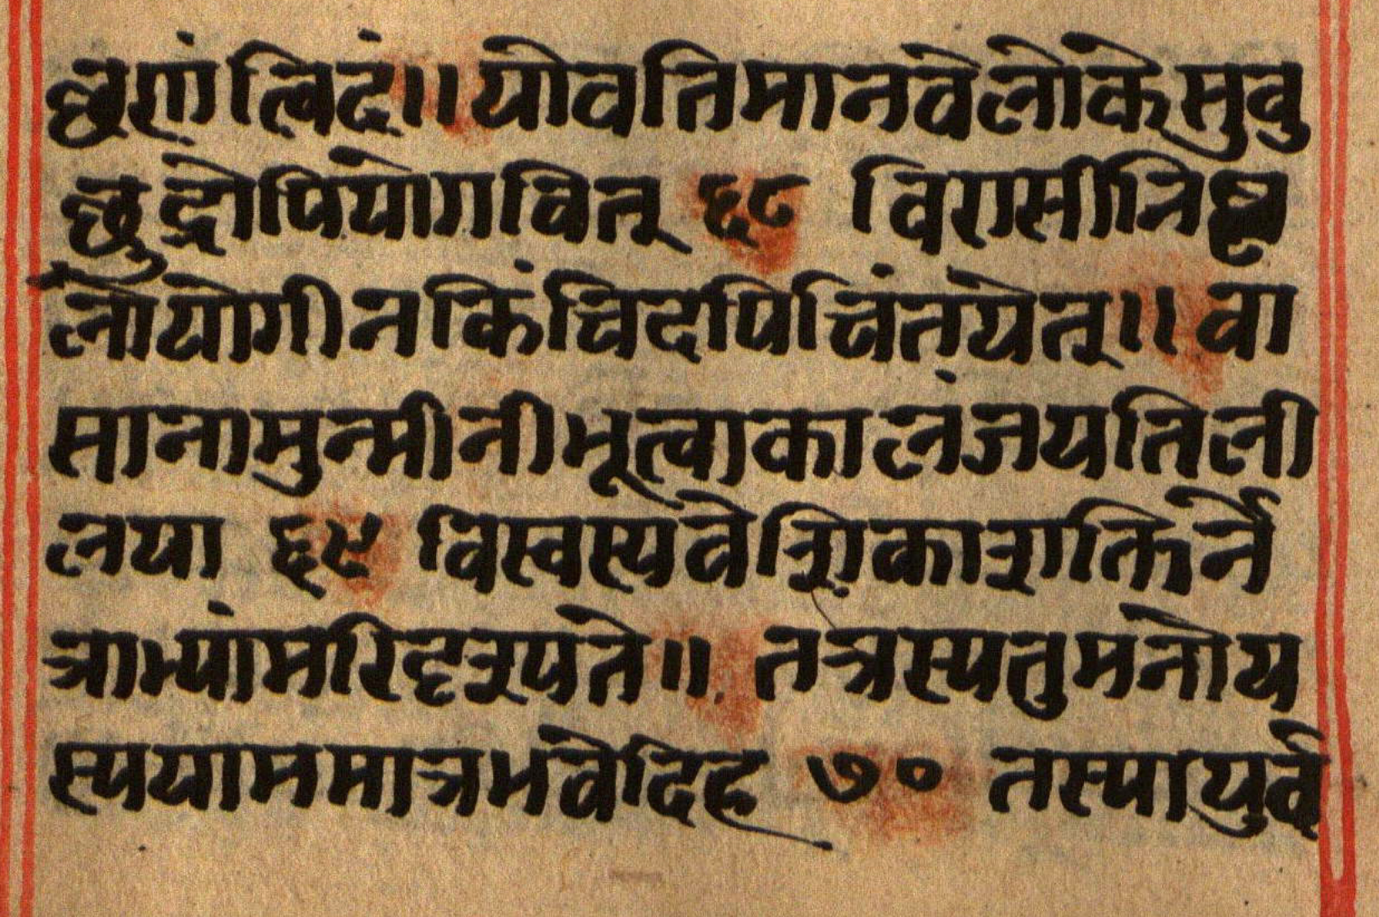 छ्रणां त्विदं॥ योवतिमानवेलोकेसुवु
छुद्रोपियोगवित् ६८ विरासीनिघृ
लोयोगीनकिंचिदपिचिंतयेत्॥ वा
सानामुन्मीनीभूत्वाकालंजयतिली
लया ६९ विस्वस्यवेशिकाशक्तिर्ने
त्राभ्यांमरिदृश्यते॥ तत्रस्यतुमनोय
स्ययाममात्रभवेदिह ७० तस्यायुर्व